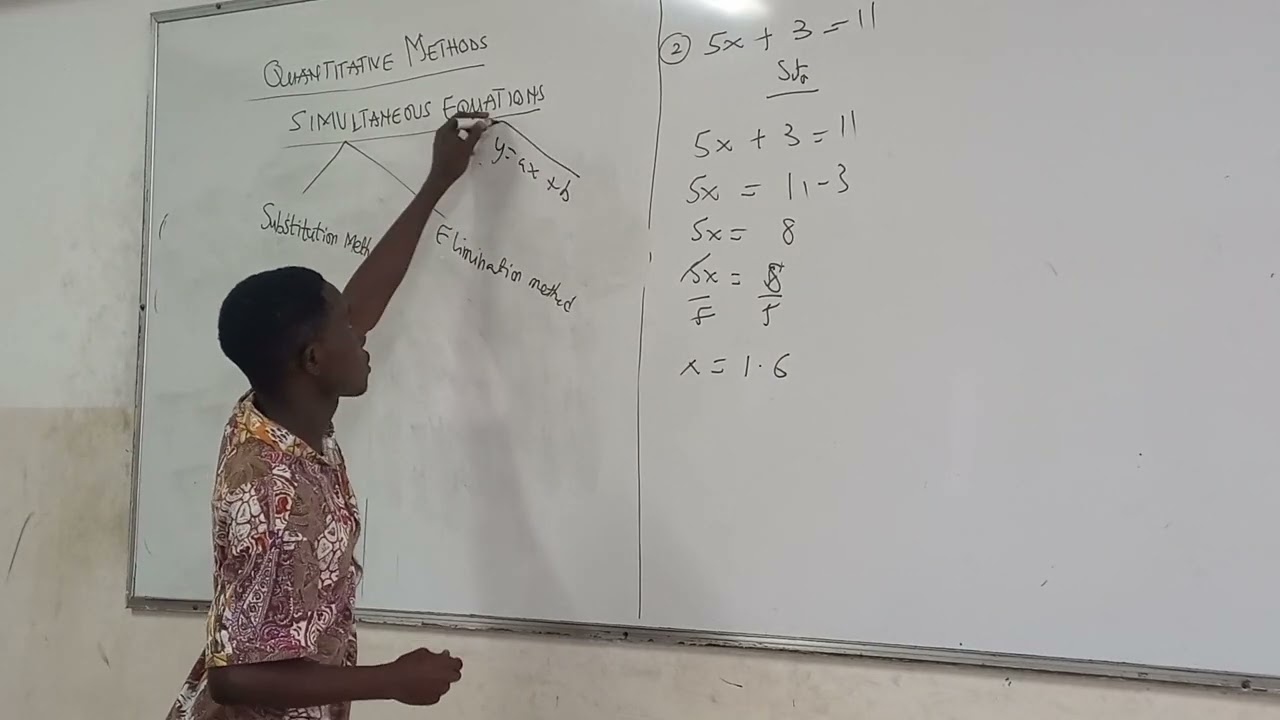 QUANTITATIVE METHODS
SIMULTANEOUS EQUATIONS
y=ax+b
Substitution Meth
Elimination method
② 5x + 3 = 11
5x + 3 = 11
5x = 11-3
5x = 8
5x = 8
5 5
x = 1.6